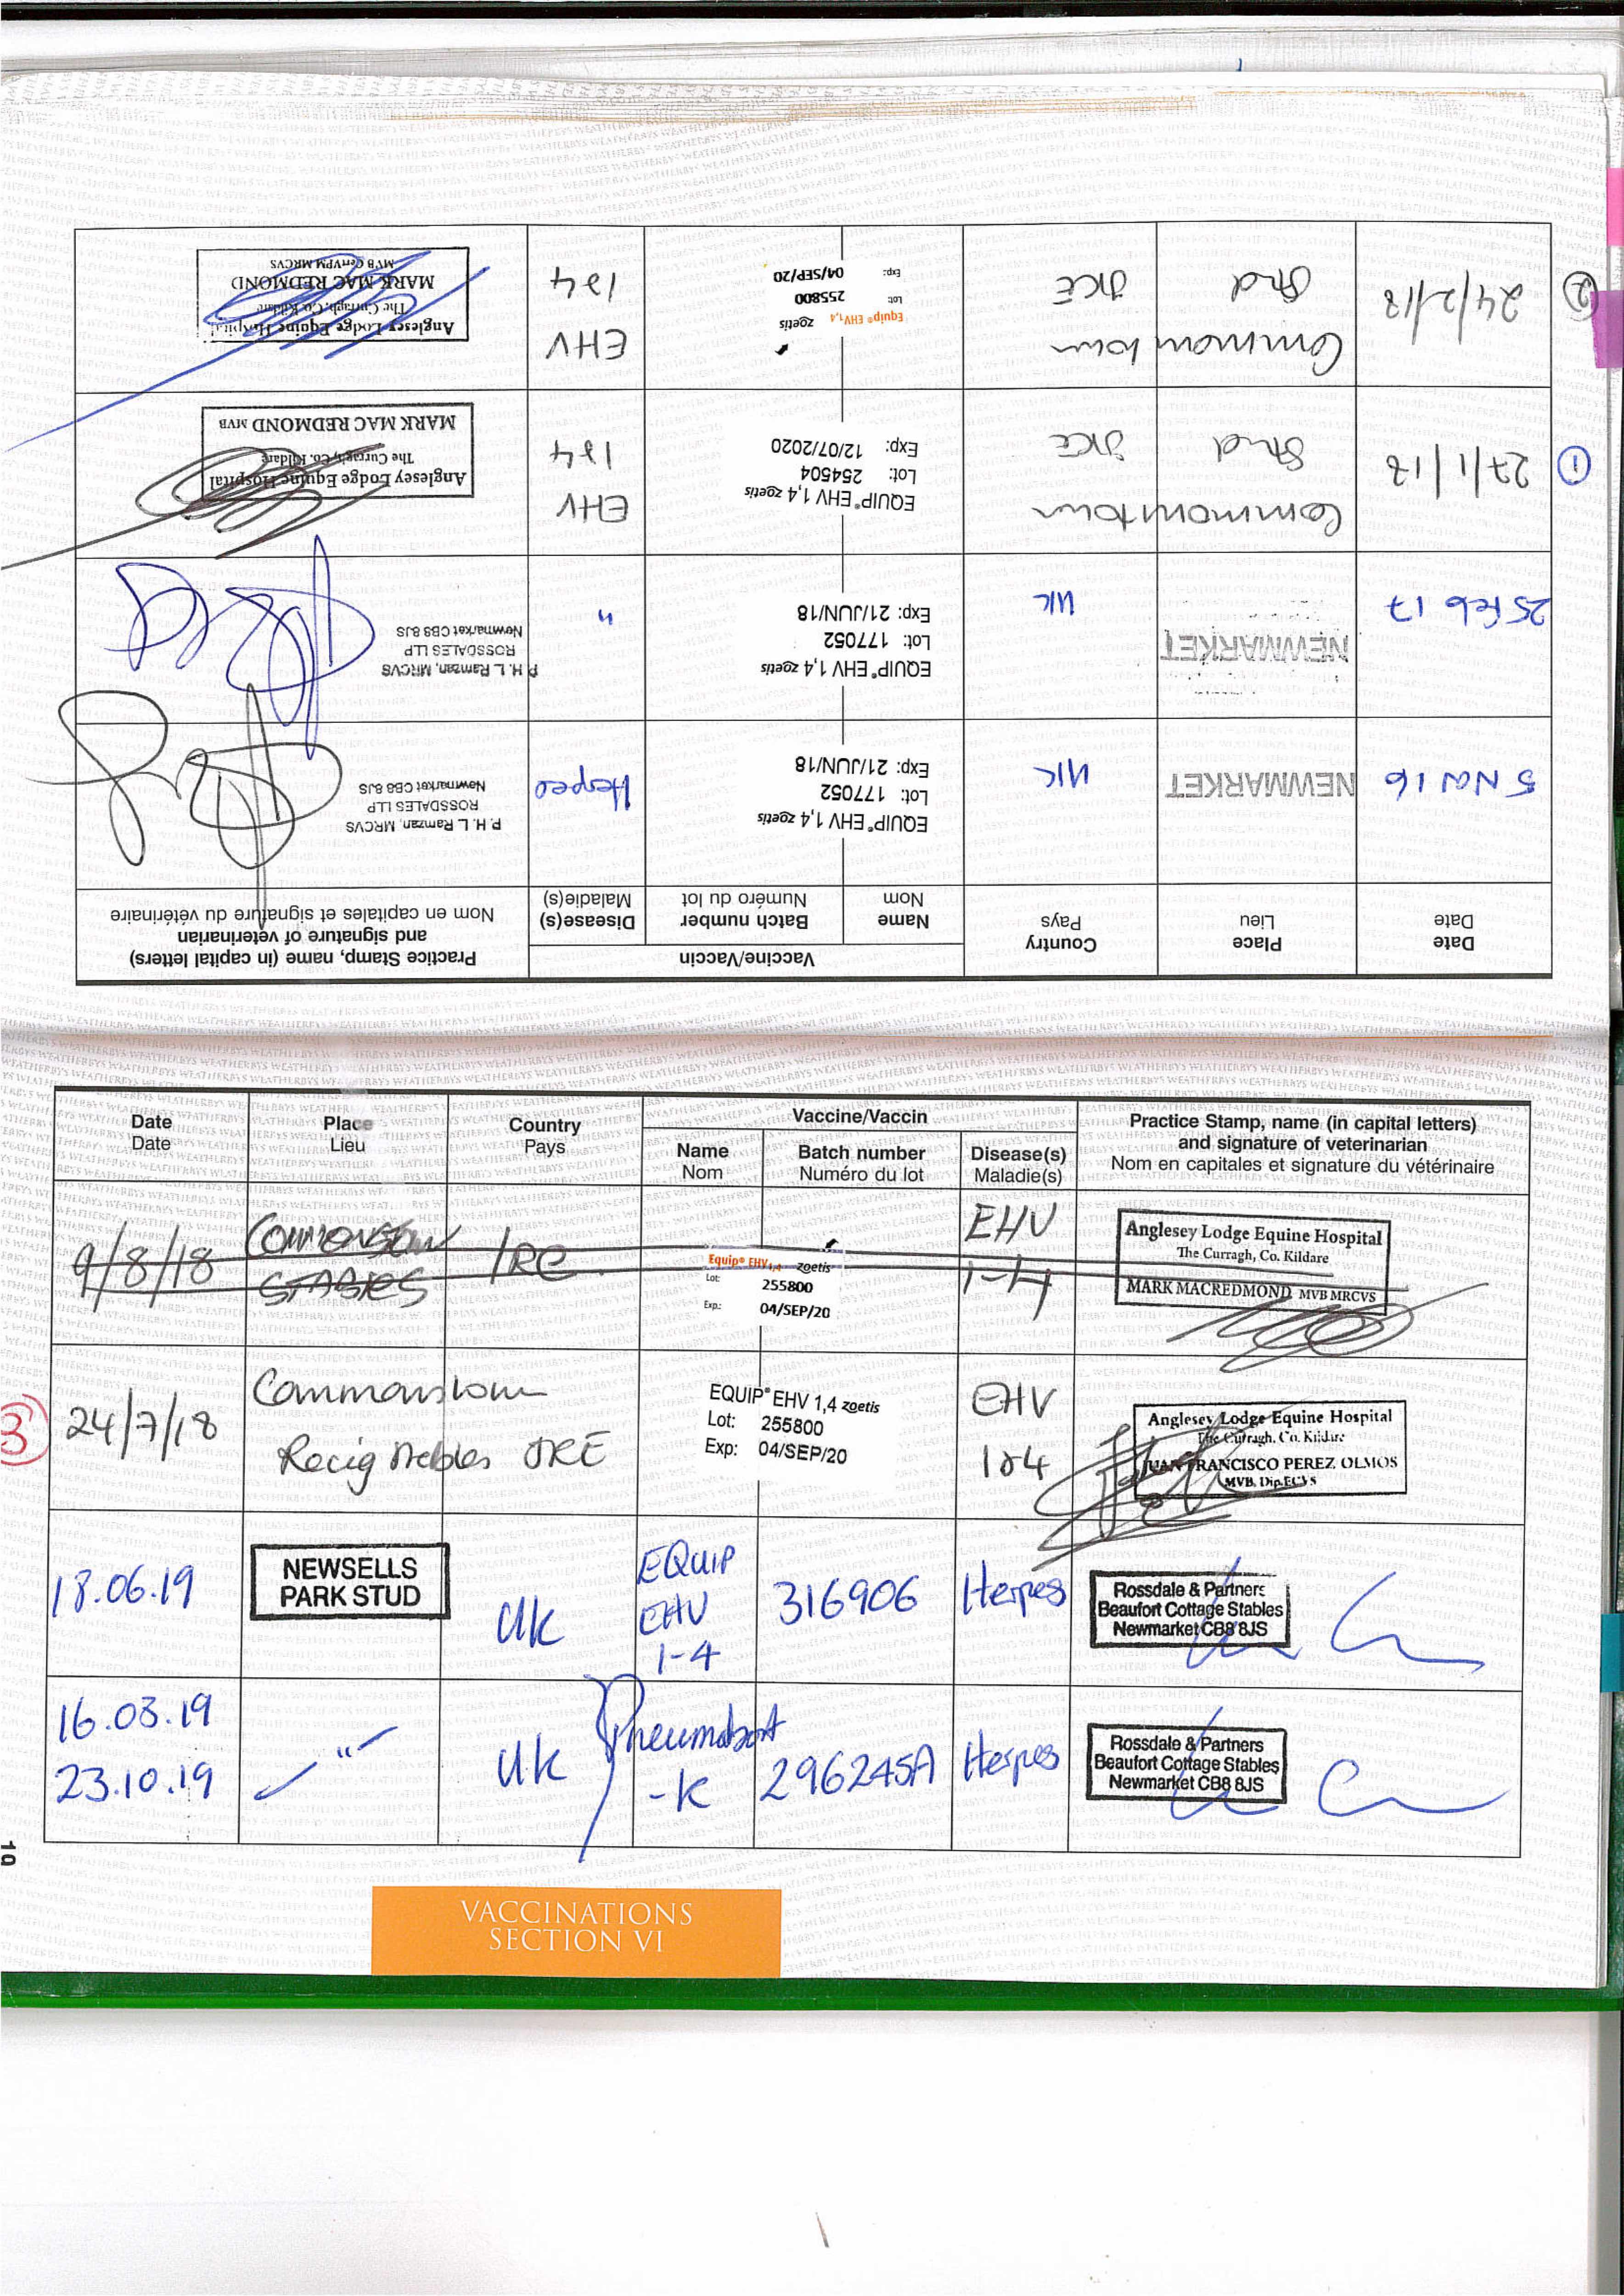 Date
Date
Place
Lieu
Country
Pays
Vaccine/Vaccin
Name
Nom
Batch number
Numéro du lot
Disease(s)
Maladie(s)
Practice Stamp, name (in capital letters)
and signature of veterinarian
Nom en capitales et signature du vétérinaire
5 Nov 16
NEWMARKET
UK
EQUIP® EHV 1,4 zoetis
Lot: 177052
Exp: 21/JUN/18
Herpes
P. H. L. Ramzan, MRCVS
ROSSDALES LLP
Newmarket CB8 8JS
25 Feb 17
NEWMARKET
UK
EQUIP® EHV 1,4 zoetis
Lot: 177052
Exp: 21/JUN/18
"
P. H. L. Ramzan, MRCVS
ROSSDALES LLP
Newmarket CB8 8JS
1
27/1/18
Commonstown
Stud IRE
EQUIP® EHV 1,4 zoetis
Lot: 254504
Exp: 12/07/2020
EHV
1&4
Anglesey Lodge Equine Hospital
The Curragh, Co. Kildare
MARK MAC REDMOND MVB
2
24/2/18
Commonstown
Stud IRE
Equip® EHV 1,4 zoetis
Lot: 255800
Exp: 04/SEP/20
EHV
1&4
Anglesey Lodge Equine Hospital
The Curragh, Co. Kildare
MARK MAC REDMOND
MVB CertVPM MRCVS
Date
Date
Place
Lieu
Country
Pays
Vaccine/Vaccin
Name
Nom
Batch number
Numéro du lot
Disease(s)
Maladie(s)
Practice Stamp, name (in capital letters)
and signature of veterinarian
Nom en capitales et signature du vétérinaire
9/8/18
COMMONSTOWN
STABLES
IRE
Equip® EHV 1,4 zoetis
Lot: 255800
Exp.: 04/SEP/20
EHV
1-4
Anglesey Lodge Equine Hospital
The Curragh, Co. Kildare
MARK MACREDMOND MVB MRCVS
3
24/7/18
Commonstown
Racing Stables IRE
EQUIP® EHV 1,4 zoetis
Lot: 255800
Exp: 04/SEP/20
EHV
1&4
Anglesey Lodge Equine Hospital
The Curragh, Co. Kildare
JUAN FRANCISCO PEREZ OLMOS
MVB, Dip.ECVS
18.06.19
NEWSELLS
PARK STUD
UK
EQUIP
EHV
1-4
316906
Herpes
Rossdale & Partners
Beaufort Cottage Stables
Newmarket CB8 8JS
16.08.19
23.10.19
"
UK
Pneumabort
-K
296245A
Herpes
Rossdale & Partners
Beaufort Cottage Stables
Newmarket CB8 8JS
19
VACCINATIONS
SECTION VI